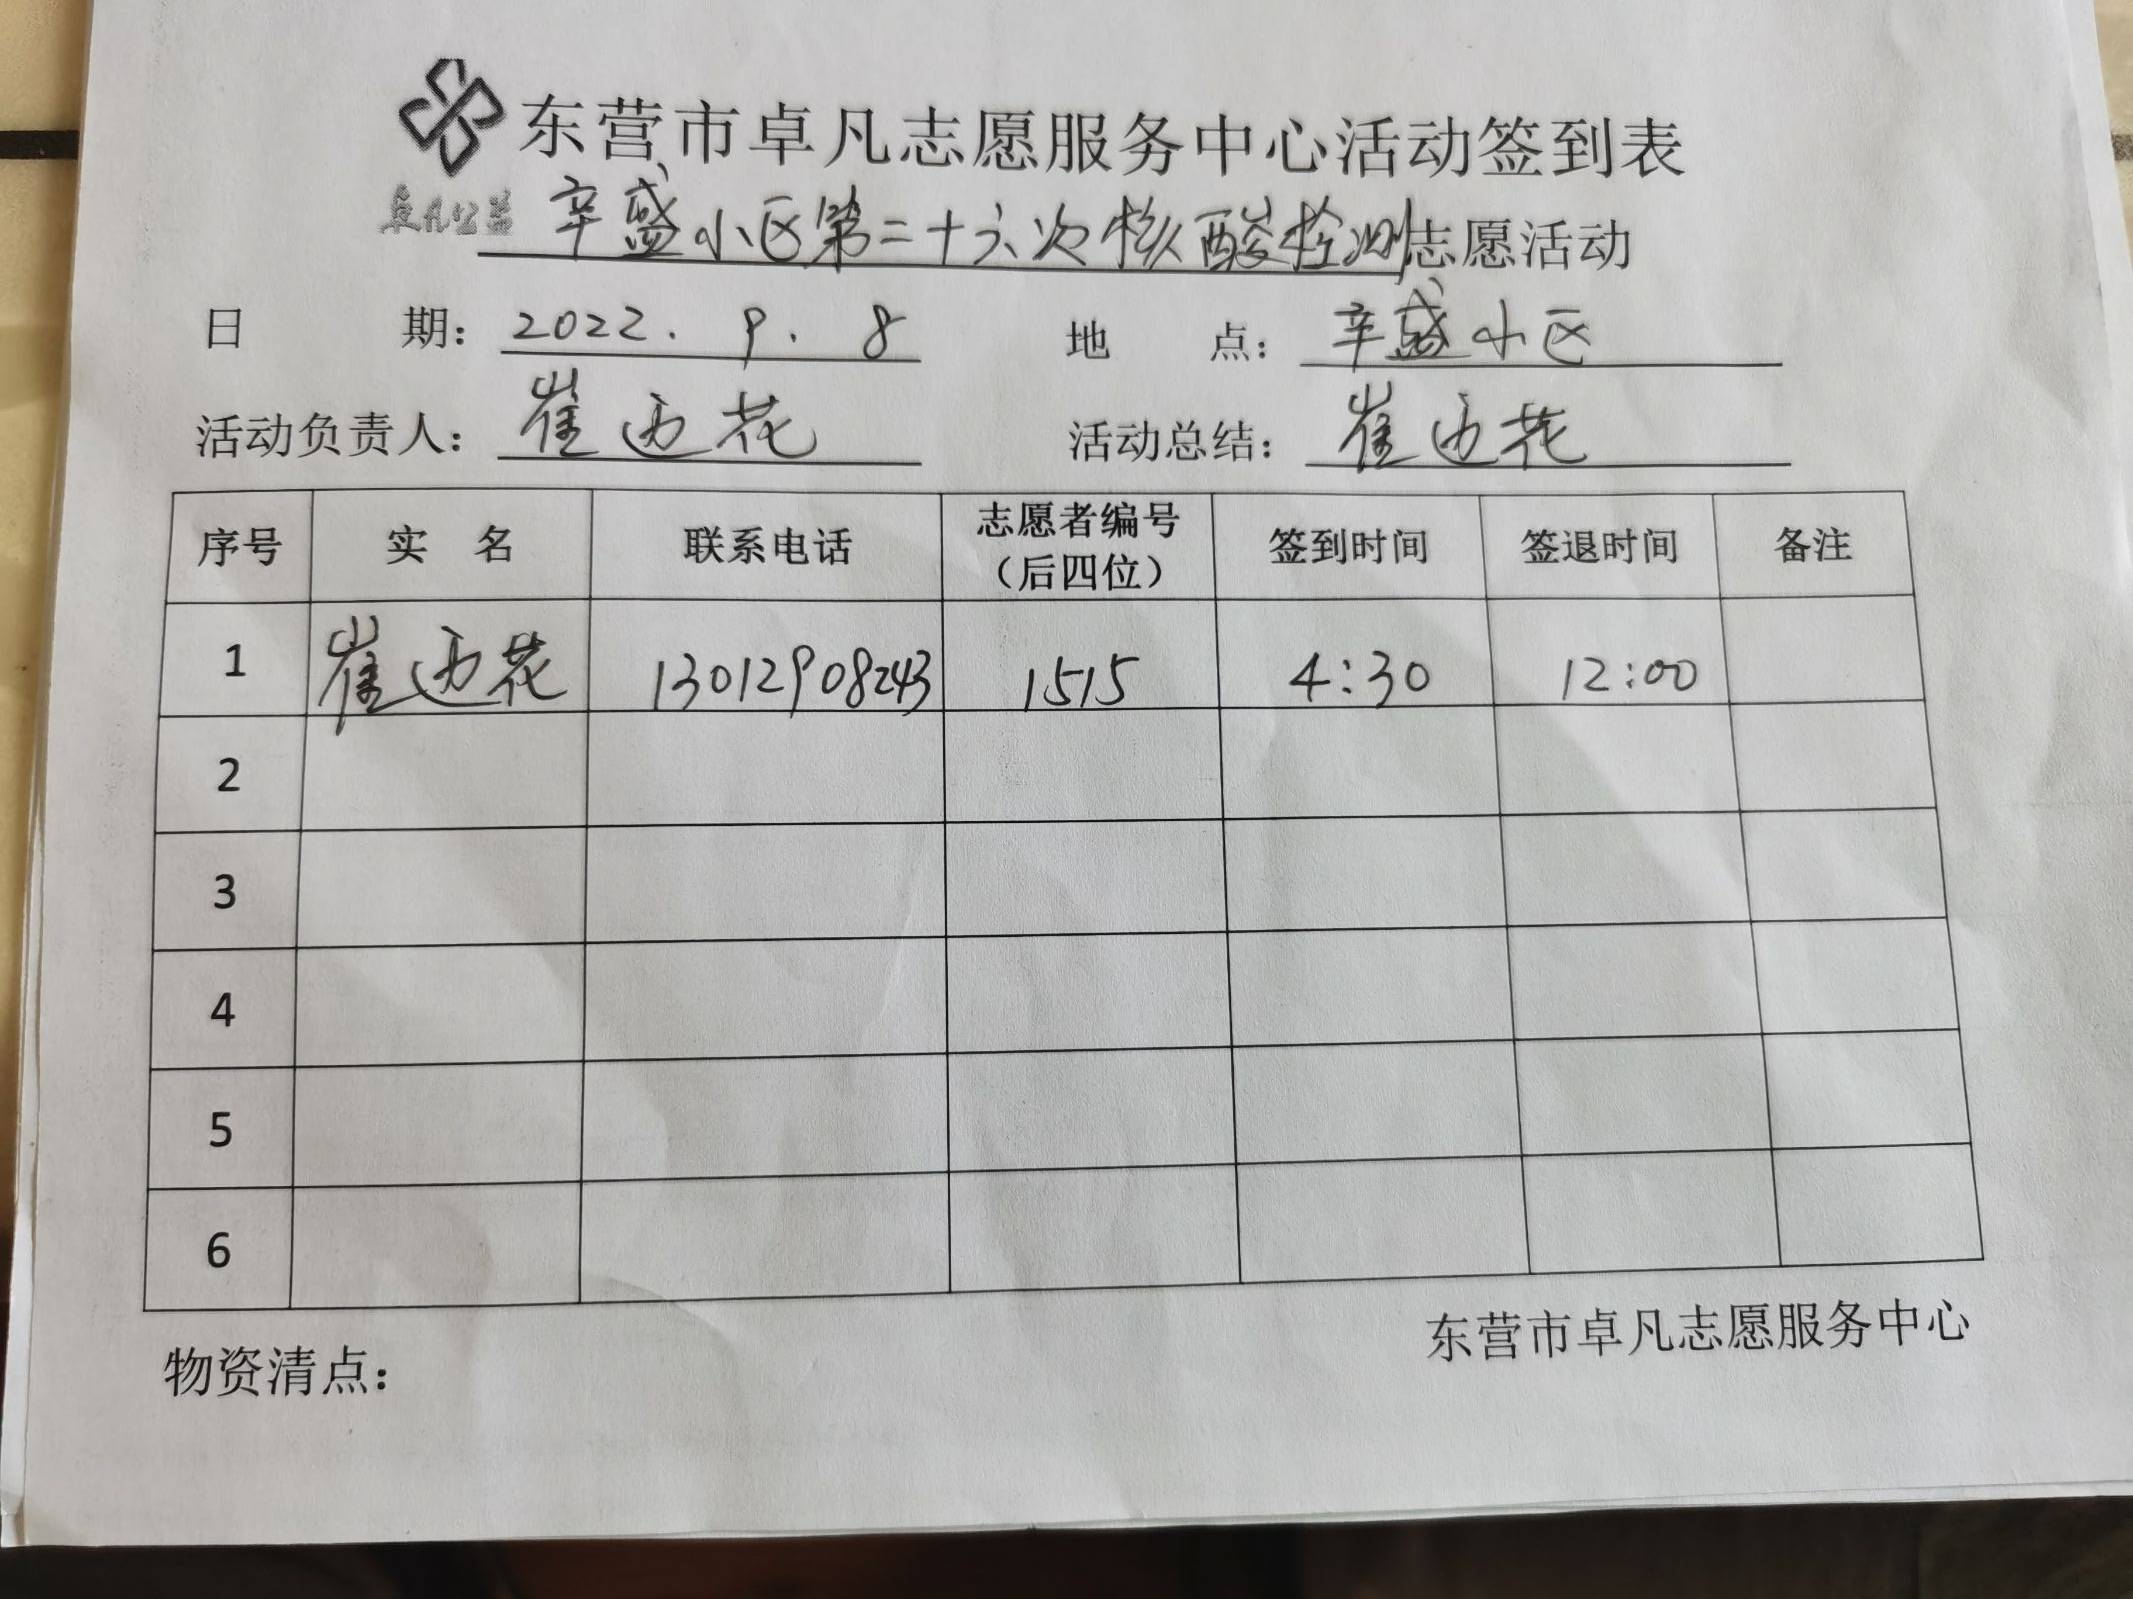 东营市卓凡志愿服务中心活动签到表
卓凡公益
辛盛小区第二十六次核酸检测志愿活动
日 期：2022.9.8 地 点：辛盛小区
活动负责人：崔迺花 活动总结：崔迺花
序号 实 名 联系电话 志愿者编号（后四位） 签到时间 签退时间 备注
1 崔迺花 13012908243 1515 4:30 12:00
2
3
4
5
6
东营市卓凡志愿服务中心
物资清点：